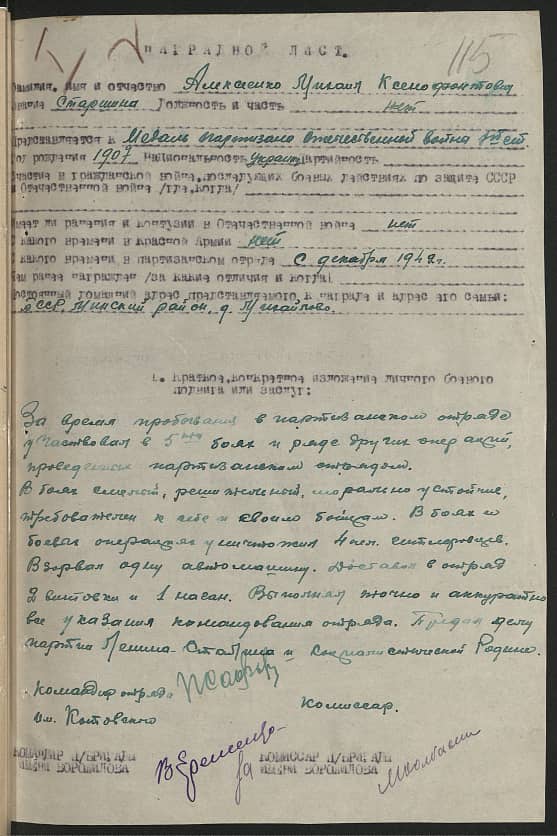 115
НАГРАДНОЙ ЛИСТ.
Фамилия, имя и отчество Алексеенко Михаил Ксенофонтович
звание Старшина Должность и часть нет
Представляется к Медаль партизана отечественной война
Год рождения 1907 Национальность украин. Партийность
Участие в гражданской войне, последующих боевых действиях по защите СССР
и Отечественной войне /где, когда/
Имеет ли ранения и контузии в Отечественной войне нет
С какого времени в Красной Армии нет
С какого времени в партизанском отряде С декабря 1942 г.
Чем ранее награжден /за какие отличия и когда/
Постоянный домашний адрес представляемого к награде и адрес его семьи:
БССР, Минский район, д.
1. Краткое, конкретное изложение личного боевого
подвига или заслуг:
За время пробывания в партизанском отряде
участвовал в 5 ти боях и ряде других операций,
проведенных партизанском отрядом.
В боях смелый, решительный, морально устойчив,
требователен к себе и своим бойцам. В боях и
боевых операциях уничтожил 4 гитлеровцев.
Взорвал одну автомашину. Доставил в отряд
2 винтовки и 1 наган. Выполнял точно и аккуратно
все указания командования отряда. Предан делу
партии Ленина-Сталина и социалистической Родине.
Командир отряда
им. Котовского
Комиссар.
КОМАНДИР П/БРИГАДЫ
ИМЕНИ ВОРОШИЛОВА
за
КОМИССАР П/БРИГАДЫ
ИМЕНИ ВОРОШИЛОВА